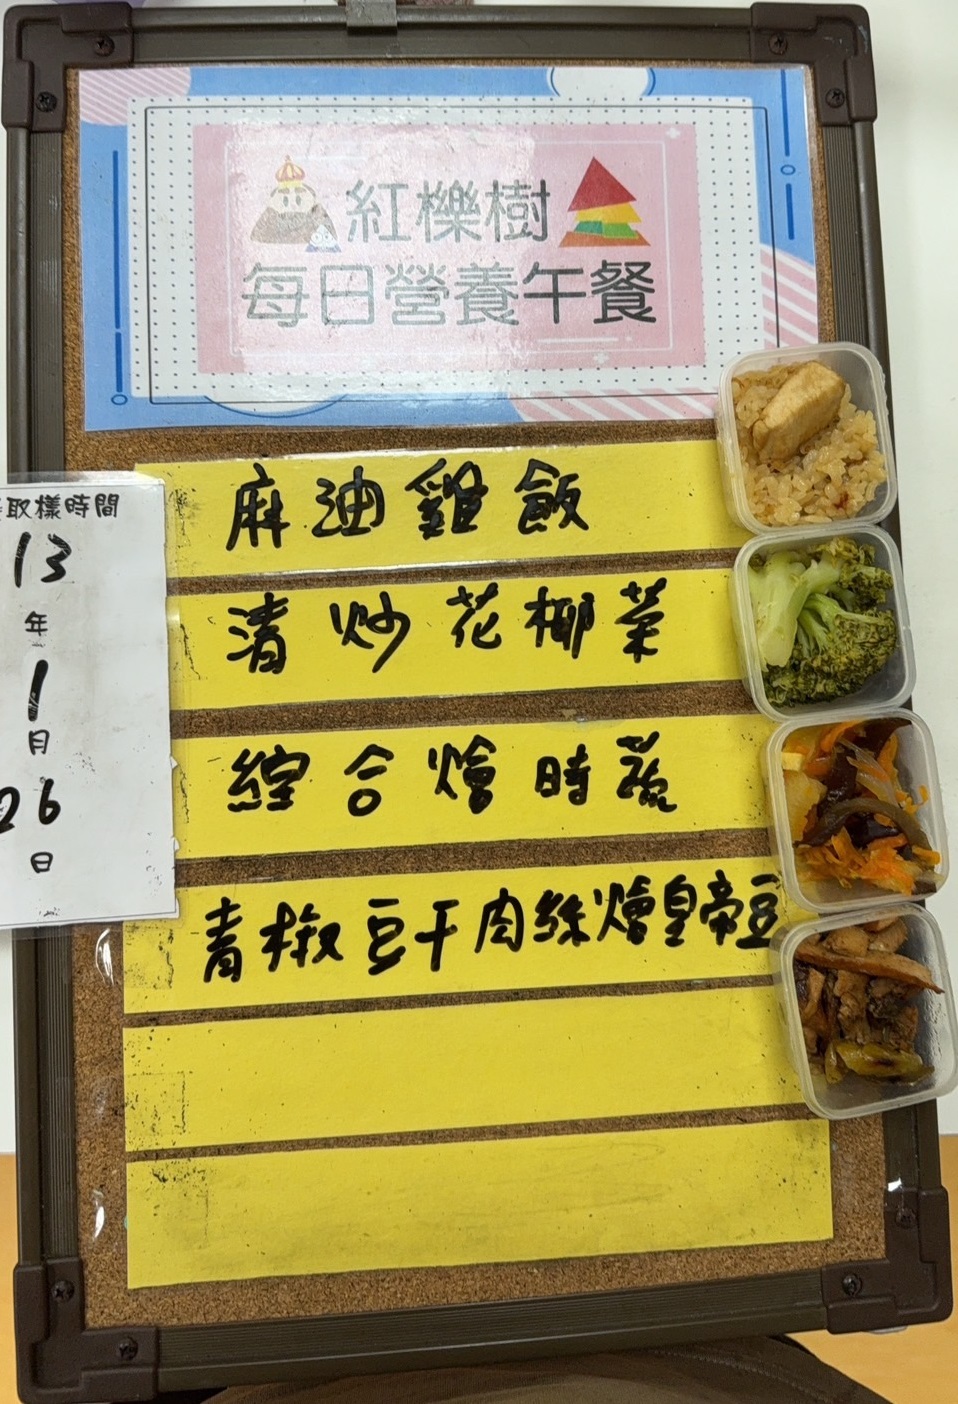 紅櫟樹
每日營養午餐
取樣時間
13
年
1
月
26
日
麻油雞飯
清炒花椰菜
綜合燴時蔬
青椒豆干肉絲燴皇帝豆